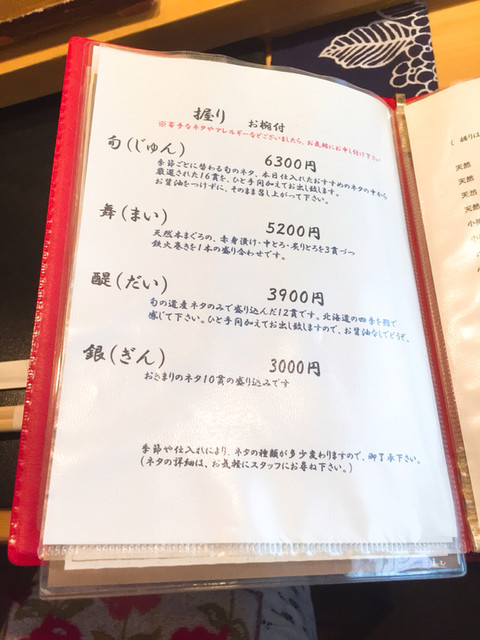 握り お椀付
※苦手なネタやアレルギーなどございましたら、お気軽にお申し付け下さい
旬(じゅん) 6300円
季節ごとに替わる旬のネタ、本日仕入れたおすすめのネタの中から
厳選された16貫を、ひと手間加えてお出し致します。
お醤油をつけずに、そのまま召し上がって下さい。
舞(まい) 5200円
天然本まぐろの、赤身漬け・中とろ・炙りとろを3貫づつ
鉄火巻きを1本の盛り合わせです。
醍(だい) 3900円
旬の道産ネタのみで盛り込んだ12貫です。北海道の四季を鮨で
感じて下さい。ひと手間加えてお出し致しますので、お醤油なしでどうぞ。
銀(ぎん) 3000円
おきまりのネタ10貫の盛り込みです
季節や仕入れにより、ネタの種類が多少変わりますので、御了承下さい。
(ネタの詳細は、お気軽にスタッフにお尋ね下さい。)
天然
天然
天然